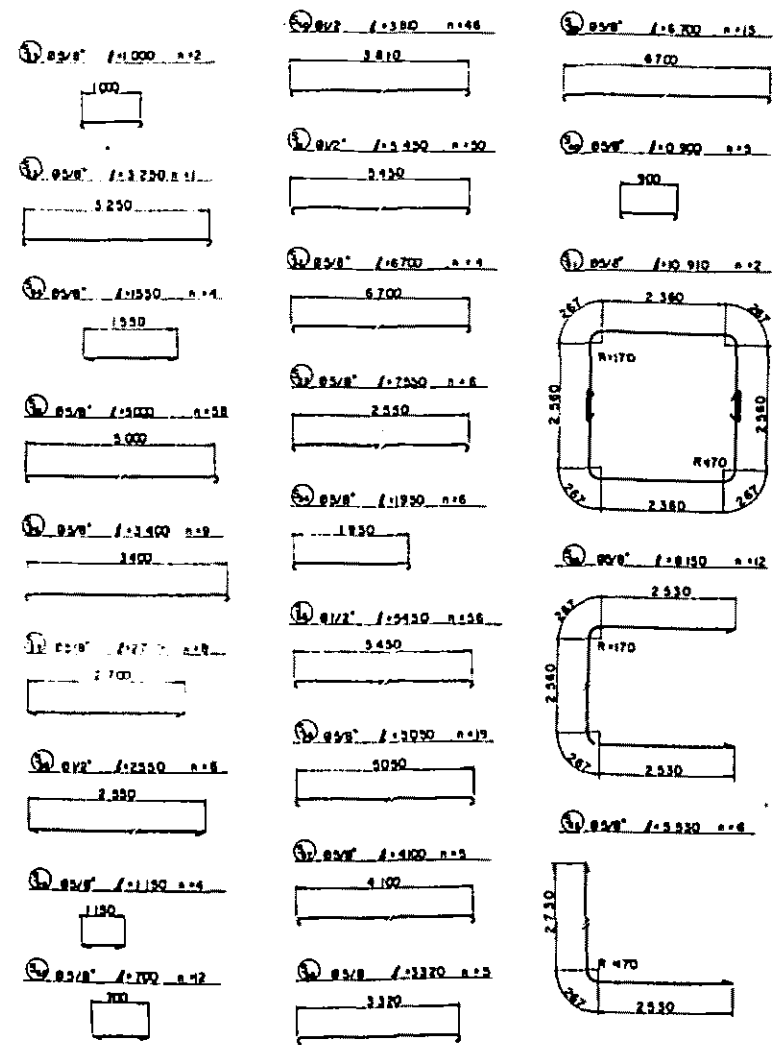 ø5/8" ℓ=1.000 n=2
1000
ø5/8" ℓ=3.250 n=1
3.250
ø5/8" ℓ=1550 n=4
1550
ø5/8" ℓ=5000 n=58
5.000
ø5/8" ℓ=3.400 n=9
3400
n=8
2.700
ø1/2" ℓ=2550 n=6
2.550
ø5/8" ℓ=1.150 n=4
1150
ø5/8" ℓ=700 n=12
700
ø1/2 ℓ=3.810 n=46
3.810
ø1/2" ℓ=5.450 n=50
5.450
ø5/8" ℓ=6700 n=4
6.700
ø5/8" n=6
2.550
ø5/8" ℓ=1950 n=6
1950
ø1/2" ℓ=5450 n=56
5.450
ø5/8" ℓ=5050 n=19
5050
ø5/8" ℓ=4100 n=5
4.100
ø5/8 ℓ=3.320 n=5
3.320
ø5/8" ℓ=6.700 n=15
6700
ø5/8" ℓ=0.900 n=5
900
ø5/8" ℓ=10.910 n=2
267 2.360 267
R=170
2.560 2.560
R=170
267 2.360 267
ø5/8" ℓ=8.150 n=12
267 2.530
R=170
2.560
267 2.530
ø5/8" ℓ=5.530 n=6
2.730
R=170
267 2530